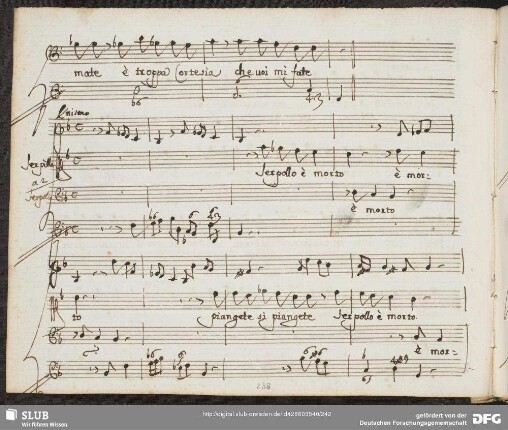 mate è troppa Cortesia che uoi mi fate
b6
6
4 3
Unisoni
Serpollo è morto è mor:
a 2
è morto
to piangete si piangete Serpollo è morto.
è mor:
238
SLUB
Wir führen Wissen.
http://digital.slub-dresden.de/id426603540/242
gefördert von der
Deutschen Forschungsgemeinschaft
DFG